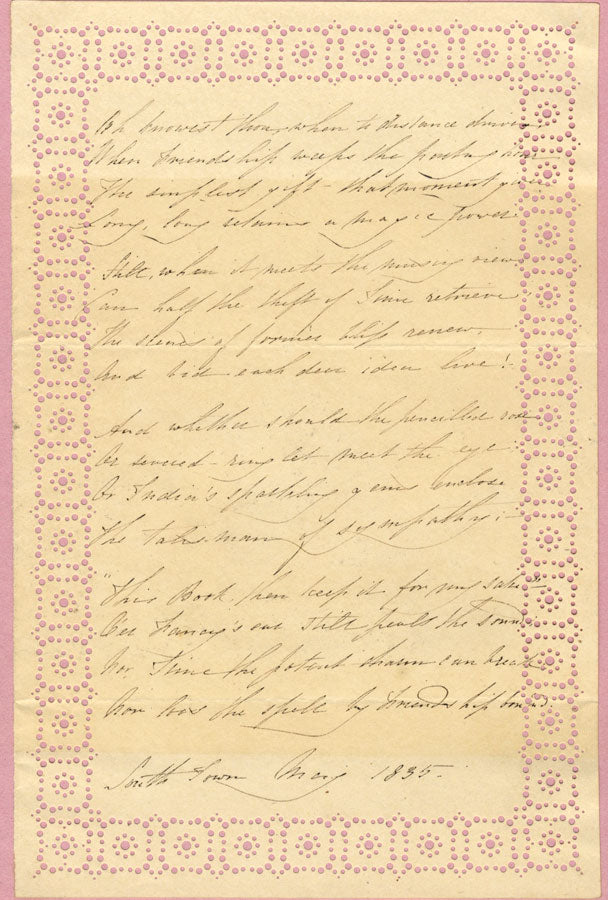 Oh knowest thou, when to distance driven
When Friendship weeps the parting hour
The simplest gift - that moment given
Long, long retains a magic Power.
Still, when it meets the musing view
Can half the theft of Time retrieve
The scenes of former bliss renew,
And bid each dear idea live!
And whether should the pencilled rose
Or severed ringlet meet the eye:
Or India's sparkling gems enclose
The talisman of sympathy:
"This Book, then keep it for my sake"
On Fancy's ear still peals the sound
Nor Time the potent charm can break
Nor the spell by Friendship bound.
South Town 1835.